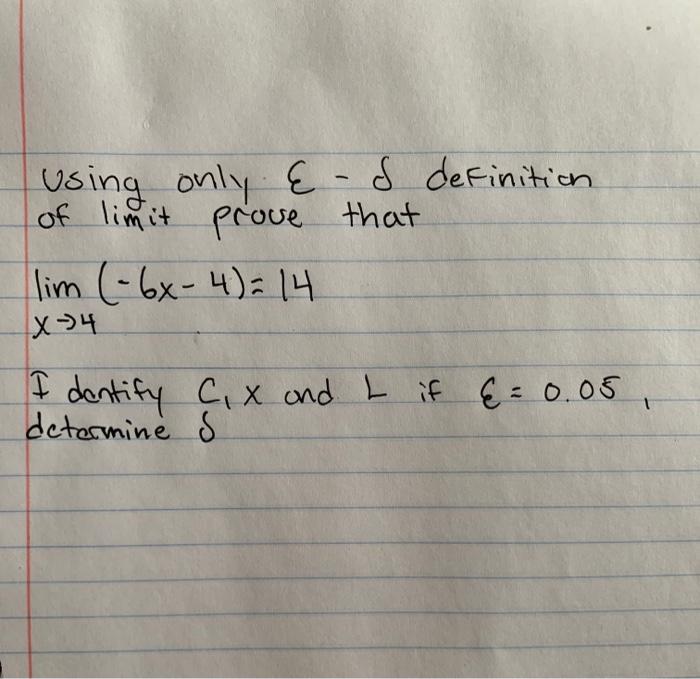 Using only ε - δ definition
of limit prove that
lim (-6x - 4) = 14
x→4
Identify C, x and L if ε = 0.05,
determine δ